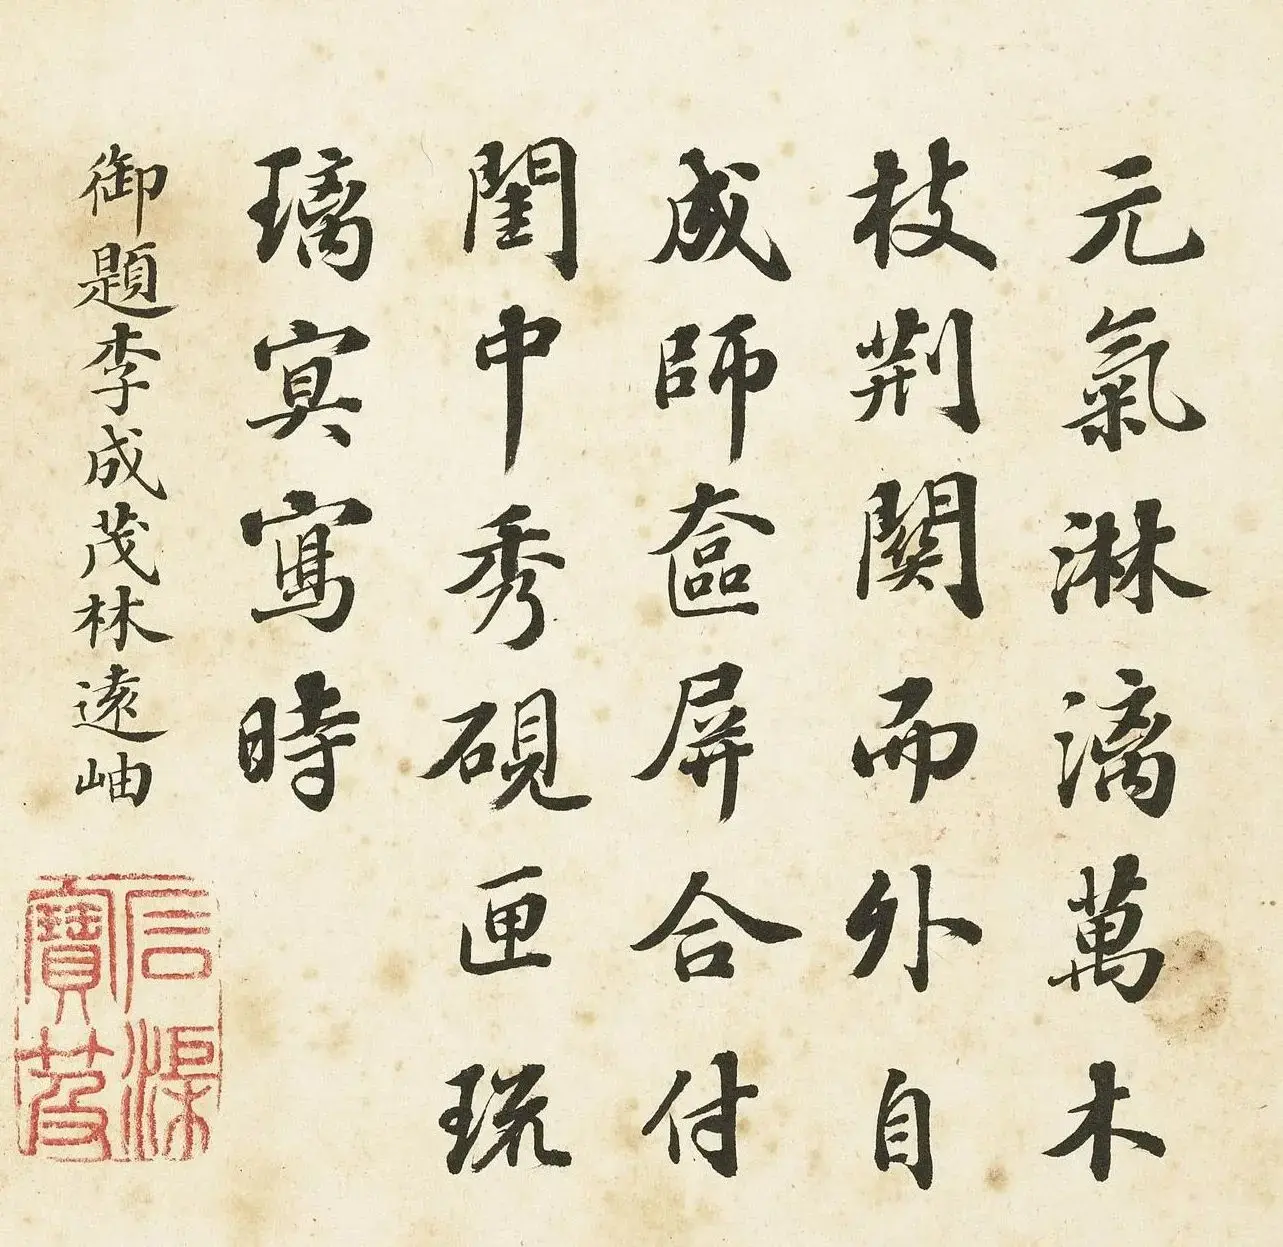 元氣淋漓萬木
枝荆關而外自
成師奩屏合付
閨中秀硯匣琉
璃寘寫時
御題李成茂林遠岫
石渠
寶笈